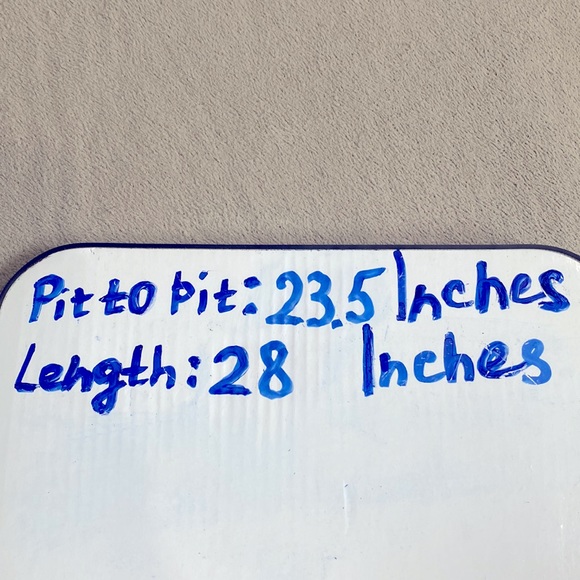 Pit to pit: 23.5 Inches
Length: 28 Inches